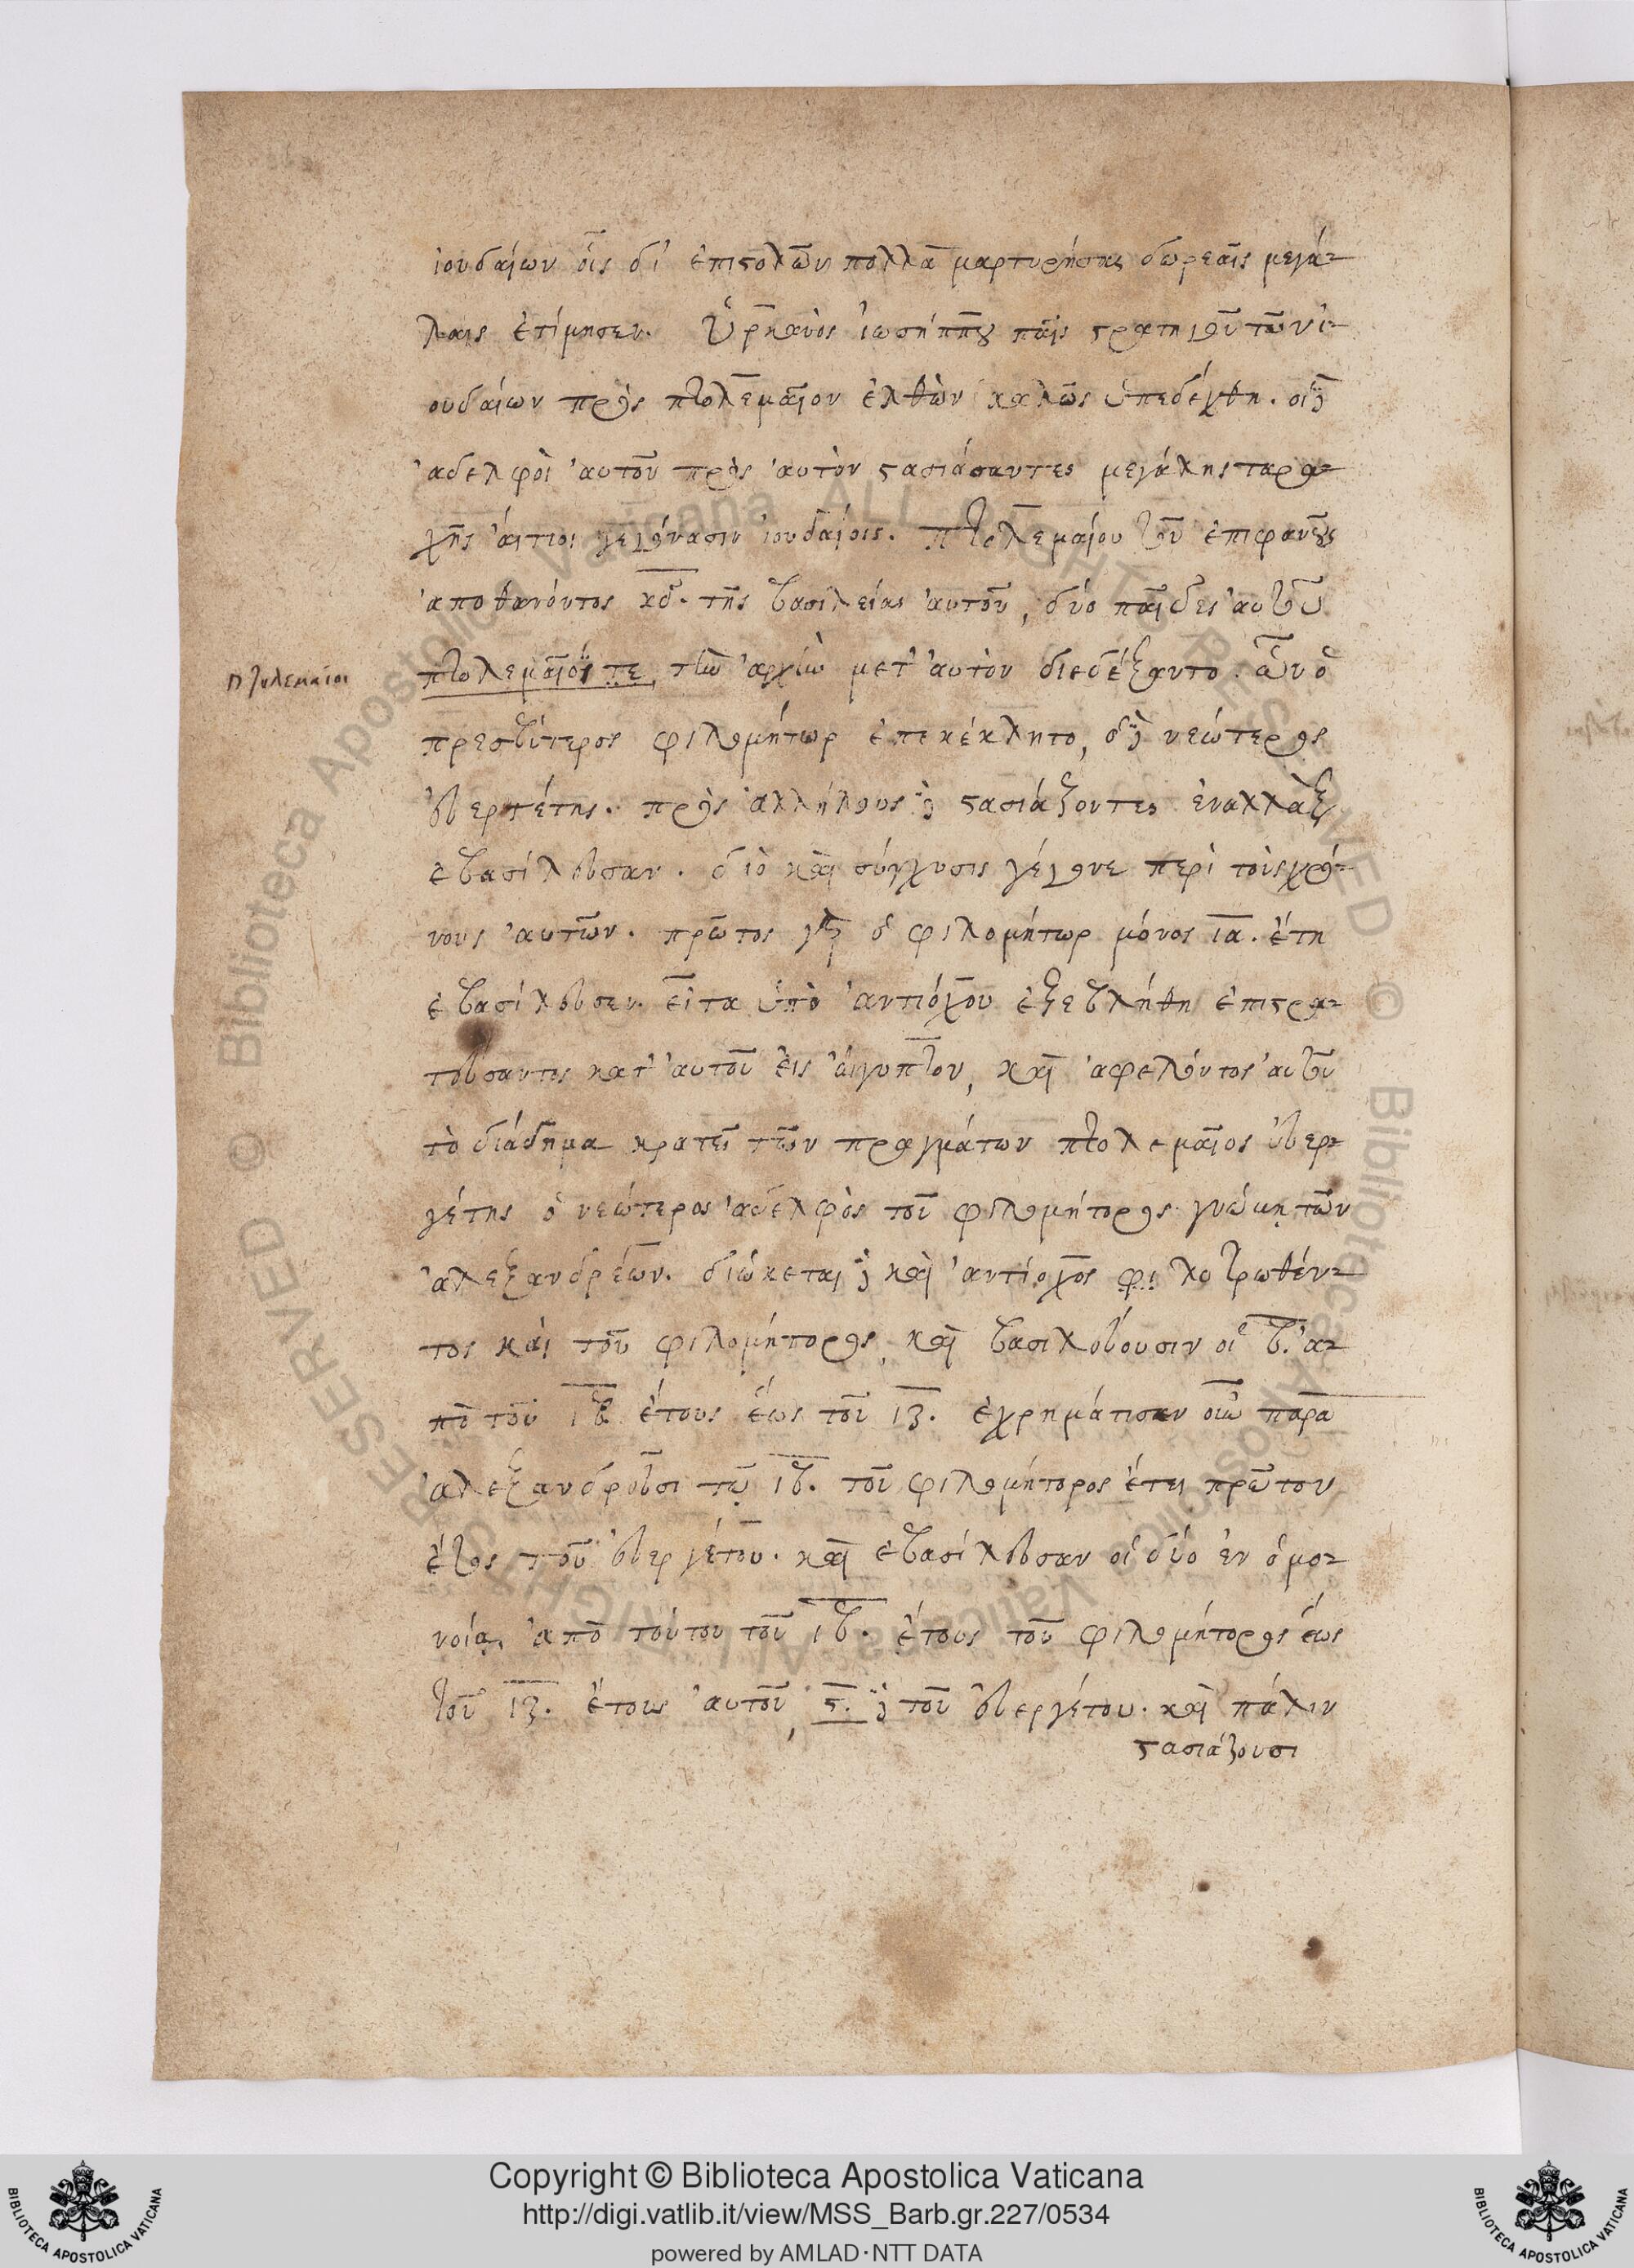 ἰουδαίων οἷς δι' ἐπιστολῶν πολλὰ μαρτυρήσας δωρεαῖς μεγά-
λαις ἐτίμησεν. Ὑρκανὸς ἰωσήππου παῖς στρατηγοῦ τῶν ἰ-
ουδαίων πρὸς πτολεμαῖον ἐλθὼν καλῶς ὑπεδέχθη. οἱ δὲ
ἀδελφοὶ αὐτοῦ πρὸς αὐτὸν στασιάσαντες μεγάλης ταρα-
χῆς αἴτιοι γεγόνασιν ἰουδαίοις. πτολεμαίου τοῦ ἐπιφανοῦς
ἀποθανόντος κδ. τῆς βασιλείας αὐτοῦ, δύο παῖδες αὐτοῦ
πτολεμαῖοι
πτολεμαῖοί τε, τὴν ἀρχὴν μετ' αὐτὸν διεδέξαντο. ὧν ὁ
πρεσβύτερος φιλομήτωρ ἐπεκέκλητο, ὁ δὲ νεώτερος
εὐεργέτης. πρὸς ἀλλήλους δὲ στασιάζοντες ἐναλλὰξ
ἐβασίλευσαν. διὸ καὶ σύγχυσις γέγονε περὶ τοὺς χρό-
νους αὐτῶν. πρῶτος γὰρ ὁ φιλομήτωρ μόνος ια. ἔτη
ἐβασίλευσεν. εἶτα ὑπὸ ἀντιόχου ἐξεβλήθη ἐπιστρα-
τεύσαντος κατ' αὐτοῦ εἰς αἴγυπτον, καὶ ἀφελόντος αὐτοῦ
τὸ διάδημα κρατεῖ τῶν πραγμάτων πτολεμαῖος εὐερ-
γέτης ὁ νεώτερος ἀδελφὸς τοῦ φιλομήτορος γνώμῃ τῶν
ἀλεξανδρέων. διώκεται δὲ καὶ ἀντίοχος φιλοτρωθέν-
τος καὶ τοῦ φιλομήτορος, καὶ βασιλεύουσιν οἱ β. ἀ-
πὸ τοῦ ιβ. ἔτους ἕως τοῦ ιζ. ἐχρημάτισαν οὖν παρὰ
ἀλεξανδρεῦσι τῷ ιβ. τοῦ φιλομήτορος ἔτει πρῶτον
ἔτος τοῦ εὐεργέτου. καὶ ἐβασίλευσαν οἱ δύο ἐν ὁμο-
νοίᾳ, ἀπὸ τούτου τοῦ ιβ. ἔτους τοῦ φιλομήτορος ἕως
τοῦ ιζ. ἔτους αὐτοῦ, ς. δὲ τοῦ εὐεργέτου. καὶ πάλιν
στασιάζουσι
Copyright © Biblioteca Apostolica Vaticana
http://digi.vatlib.it/view/MSS_Barb.gr.227/0534
powered by AMLAD·NTT DATA
BIBLIOTECA APOSTOLICA VATICANA
BIBLIOTECA APOSTOLICA VATICANA
© Biblioteca Apostolica Vaticana ALL RIGHTS RESERVED © Biblioteca Apostolica Vaticana ALL RIGHTS RESERVED